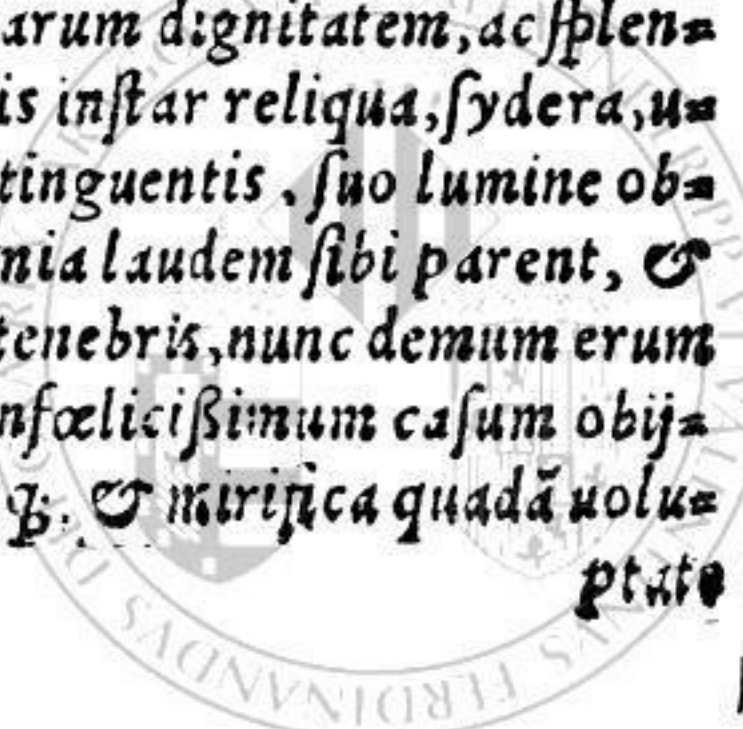 arum dignitatem, ac ſplen=
is inſtar reliqua, ſydera, u=
tinguentis, ſuo lumine ob=
nia laudem ſibi parent, &
tenebris, nunc demum erum
nfœliciſsimum caſum obij=
q;. & mirifica quadā uolu=
ptate